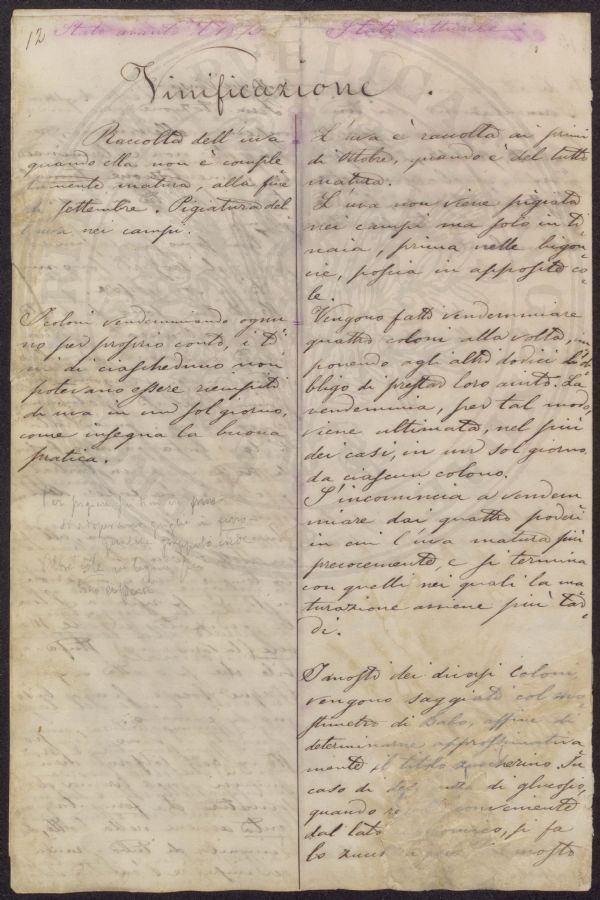 12 Stato avanti il 18
Stato attuale
Vinificazione.
Raccolta dell'uva
quando ella non è comple
tamente matura, alla fine
di settembre. Pigiatura del
l'uva nei campi.
I coloni vendemmiando ognu
no per proprio conto, i ti
ni di ciascheduno non
potevano essere riempiti
di uva in un sol giorno,
come insegna la buona
pratica.
Per pigiare
L'uva è raccolta ai primi
di Ottobre, quando è del tutto
matura.
L'uva non viene pigiata
nei campi ma solo in ti
naia, prima nelle bigon
cie, poscia in apposito co
le.
Vengono fatti vendemmiare
quattro coloni alla volta, im
ponendo agli altri dodici l'ob
bligo di prestar loro aiuto. La
vendemmia, per tal modo,
viene ultimata, nel più
dei casi, in un sol giorno
da ciascun colono.
S'incomincia a vendem
miare dai quattro poderi
in cui l'uva matura più
precocemente, e si termina
con quelli nei quali la ma
turazione avviene più tar
di.
I mosti dei diversi coloni
vengono saggiati col mo
stimetro di Babo, affine di
determinarne approssimativa
mente il titolo zuccherino. In
caso di di glucosio,
quando conveniente
dal lato economico, si fa
lo mosto